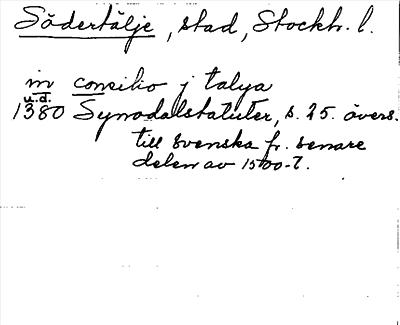 Södertälje, stad, Stockh. l.
in consilio j talya
u.d.
1380 Synodalstatuter, s. 25. övers.
till svenska fr. senare
delen av 1500-t.